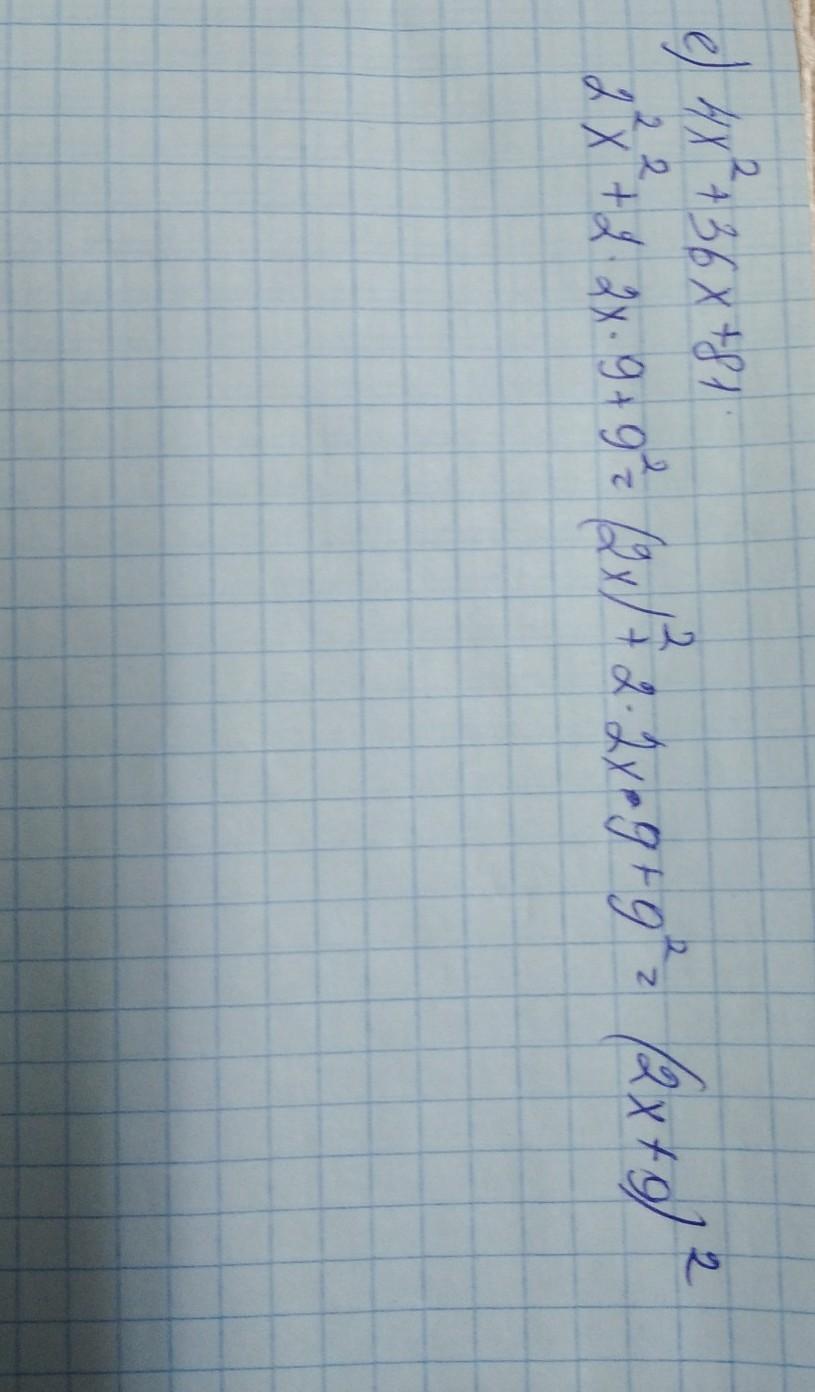 е) 4x² + 36x + 81
2²x² + 2·2x·9 + 9² = (2x)² + 2·2x·9 + 9² = (2x + 9)²